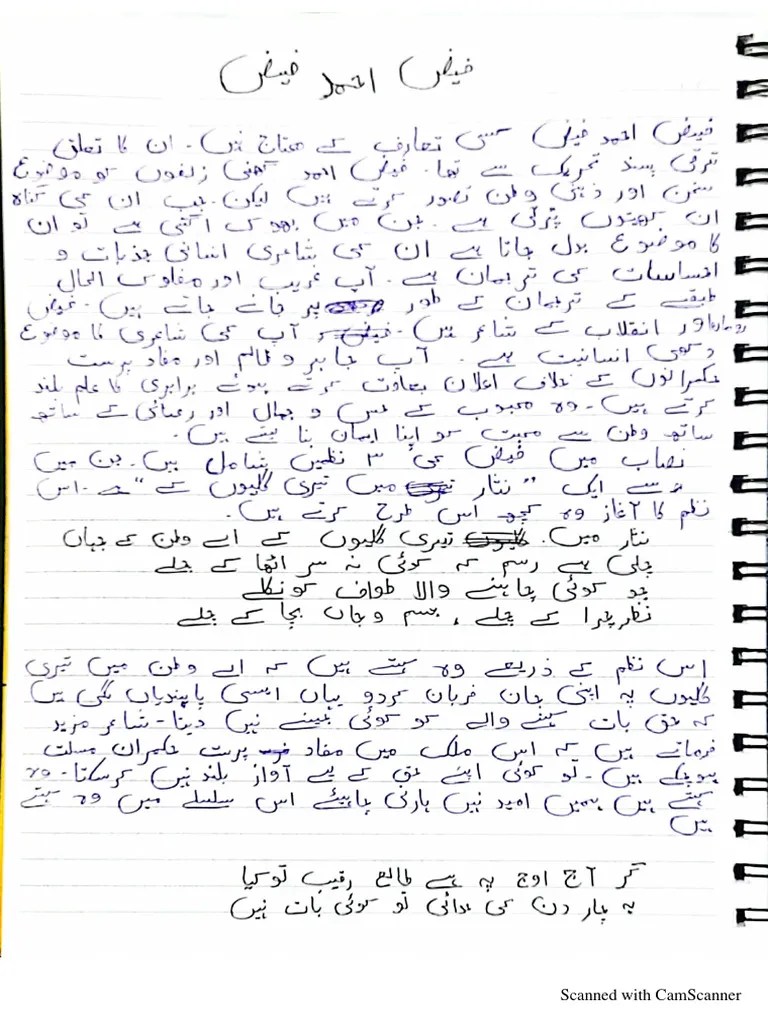 فیض احمد فیض
فیض احمد فیض کسی تعارف کے محتاج نہیں۔ ان کا تعلق
ترقی پسند تحریک سے تھا۔ فیض احمد گھنی زلفوں کو موضوع
سخن اور ذہنی وطن تصور کرتے ہیں لیکن جب ان کی نگاہ
ان کھیتوں پڑتی ہے جن میں بھوک اگتی ہے تو ان
کا موضوع بدل جاتا ہے ان کی شاعری انسانی جذبات و
احساسات کی ترجمان ہے۔ آپ غریب اور مفلوک الحال
طبقے کے ترجمان کے طور پر جانے جاتے ہیں۔ فیض
رومان اور انقلاب کے شاعر ہیں۔ آپ کی شاعری کا موضوع
دکھی انسانیت ہے۔ آپ جابر و ظالم اور مفاد پرست
حکمرانوں کے خلاف اعلان بغاوت کرتے ہوئے برابری کا علم بلند
کرتے ہیں۔ وہ محبوب کے حسن و جمال اور رعنائی کے ساتھ
ساتھ وطن سے محبت کو اپنا ایمان بنا لیتے ہیں۔
نصاب میں فیض کی ۳ نظمیں شامل ہیں۔ جن میں
سے ایک "نثار میں تیری گلیوں کے" ہے۔ اس
نظم کا آغاز وہ کچھ اس طرح کرتے ہیں۔
نثار میں تیری گلیوں کے اے وطن کہ جہاں
چلی ہے رسم کہ کوئی نہ سر اٹھا کے چلے
جو کوئی چاہنے والا طواف کو نکلے
نظر چرا کے چلے، جسم و جاں بچا کے چلے
اس نظم کے ذریعے وہ کہتے ہیں کہ اے وطن میں تیری
گلیوں پہ اپنی جان قربان کردو یہاں ایسی پابندیاں لگی ہیں
کہ حق بات کہنے والے کو کوئی جینے نہیں دیتا۔ شاعر مزید
فرماتے ہیں کہ اس ملک میں مفاد پرست حکمران مسلت
ہوچکے ہیں۔ تو کوئی اپنے حق کے لیے آواز بلند نہیں کرسکتا۔ وہ
کہتے ہیں ہمیں امید نہیں ہارنی چاہیئے اس سلسلے میں وہ کہتے
ہیں
گر آج اوج پہ ہے طالع رقیب تو کیا
یہ چار دن کی خدائی تو کوئی بات نہیں
Scanned with CamScanner